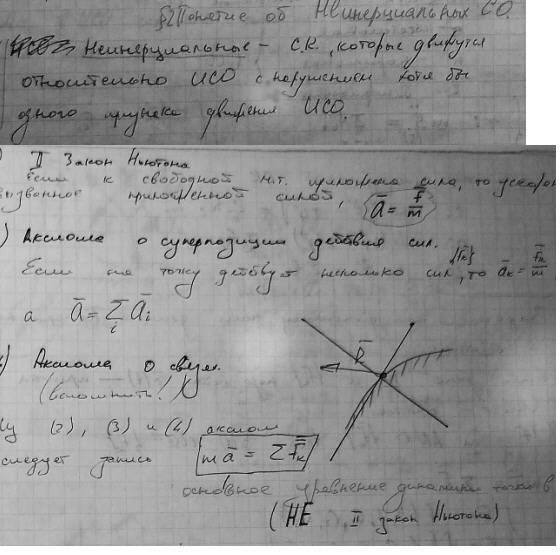 §2 Понятие об Неинерциальных СО.
Неинерциальные – С.К., которые движутся
относительно ИСО с нарушением хотя бы
одного признака движения ИСО.
II Закон Ньютона
Если к свободной м.т. приложена сила, то ускорен
вызванное приложенной силой, ā = f̄/m
) Аксиома о суперпозиции действия сил.
Если на точку действует несколько сил {f̄ₖ}, то āₖ = f̄ₖ/m
а ā = Σᵢ āᵢ
) Аксиома о связях.
(вспомнить!)
R̄
Из (2), (3) и (4) аксиом
следует запись mā = Σf̄ₖ
основное уравнение динамики точки в
(НЕ II закон Ньютона)